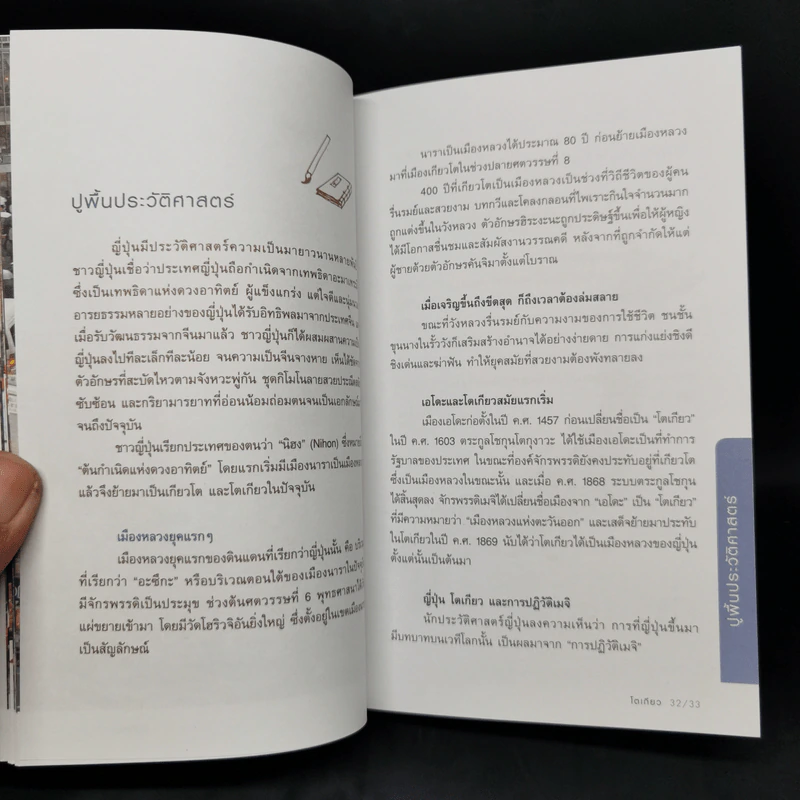 ปูพื้นประวัติศาสตร์
ญี่ปุ่นมีประวัติศาสตร์ความเป็นมายาวนานหลาย
ชาวญี่ปุ่นเชื่อว่าประเทศญี่ปุ่นถือกำเนิดจากเทพธิดา
ซึ่งเป็นเทพธิดาแห่งดวงอาทิตย์ ผู้แข็งแกร่ง แต่ใจดีและ
อารยธรรมหลายอย่างของญี่ปุ่นได้รับอิทธิพลมาจากประเทศจีน
เมื่อรับวัฒนธรรมจากจีนมาแล้ว ชาวญี่ปุ่นก็ได้ผสมผสานความเป็น
ญี่ปุ่นลงไปทีละเล็กทีละน้อย จนความเป็นจีนจางหาย เห็นได้ชัด
ตัวอักษรที่สะบัดไหวตามจังหวะพู่กัน ชุดกิโมโนลายสวย
ซับซ้อน และกริยามารยาทที่อ่อนน้อมถ่อมตนจนเป็นเอกลักษณ์
จนถึงปัจจุบัน
ชาวญี่ปุ่นเรียกประเทศของตนว่า "นิฮง" (Nihon)
"ต้นกำเนิดแห่งดวงอาทิตย์" โดยแรกเริ่มมีเมืองนาราเป็นเมือง
แล้วจึงย้ายมาเป็นเกียวโต และโตเกียวในปัจจุบัน
เมืองหลวงยุคแรกๆ
เมืองหลวงยุคแรกของดินแดนที่เรียกว่าญี่ปุ่นนั้น คือ
ที่เรียกว่า "อะซึกะ" หรือบริเวณตอนใต้ของเมืองนาราใน
มีจักรพรรดิเป็นประมุข ช่วงต้นศตวรรษที่ 6 พุทธศาสนาได้
แผ่ขยายเข้ามา โดยมีวัดโฮริวจิอันยิ่งใหญ่ ซึ่งตั้งอยู่ในเขตเมือง
เป็นสัญลักษณ์
นาราเป็นเมืองหลวงได้ประมาณ 80 ปี ก่อนย้ายเมืองหลวง
มาที่เมืองเกียวโตในช่วงปลายศตวรรษที่ 8
400 ปีที่เกียวโตเป็นเมืองหลวงเป็นช่วงที่วิถีชีวิตของผู้คน
รื่นรมย์และสวยงาม บทกวีและโคลงกลอนที่ไพเราะกินใจจำนวนมาก
ถูกแต่งขึ้นในวังหลวง ตัวอักษรฮิระงะนะถูกประดิษฐ์ขึ้นเพื่อให้ผู้หญิง
ได้มีโอกาสชื่นชมและสัมผัสงานวรรณคดี หลังจากที่ถูกจำกัดให้แต่
ผู้ชายด้วยตัวอักษรคันจิมาตั้งแต่โบราณ
เมื่อเจริญขึ้นถึงขีดสุด ก็ถึงเวลาต้องล่มสลาย
ขณะที่วังหลวงรื่นรมย์กับความงามของการใช้ชีวิต ชนชั้น
ขุนนางในรั้ววังก็เสริมสร้างอำนาจได้อย่างง่ายดาย การแก่งแย่งชิงดี
ชิงเด่นและฆ่าฟัน ทำให้ยุคสมัยที่สวยงามต้องพังทลายลง
เอโดะและโตเกียวสมัยแรกเริ่ม
เมืองเอโดะก่อตั้งในปี ค.ศ. 1457 ก่อนเปลี่ยนชื่อเป็น "โตเกียว"
ในปี ค.ศ. 1603 ตระกูลโชกุนโตกุงาวะ ได้ใช้เมืองเอโดะเป็นที่ทำการ
รัฐบาลของประเทศ ในขณะที่องค์จักรพรรดิยังคงประทับอยู่ที่เกียวโต
ซึ่งเป็นเมืองหลวงในขณะนั้น และเมื่อ ค.ศ. 1868 ระบบตระกูลโชกุน
ได้สิ้นสุดลง จักรพรรดิเมจิได้เปลี่ยนชื่อเมืองจาก "เอโดะ" เป็น "โตเกียว"
ที่มีความหมายว่า "เมืองหลวงแห่งตะวันออก" และเสด็จย้ายมาประทับ
ในโตเกียวในปี ค.ศ. 1869 นับได้ว่าโตเกียวได้เป็นเมืองหลวงของญี่ปุ่น
ตั้งแต่นั้นเป็นต้นมา
ญี่ปุ่น โตเกียว และการปฏิวัติเมจิ
นักประวัติศาสตร์ญี่ปุ่นลงความเห็นว่า การที่ญี่ปุ่นขึ้นมา
มีบทบาทบนเวทีโลกนั้น เป็นผลมาจาก "การปฏิวัติเมจิ"
ปูพื้นประวัติศาสตร์
โตเกียว 32/33